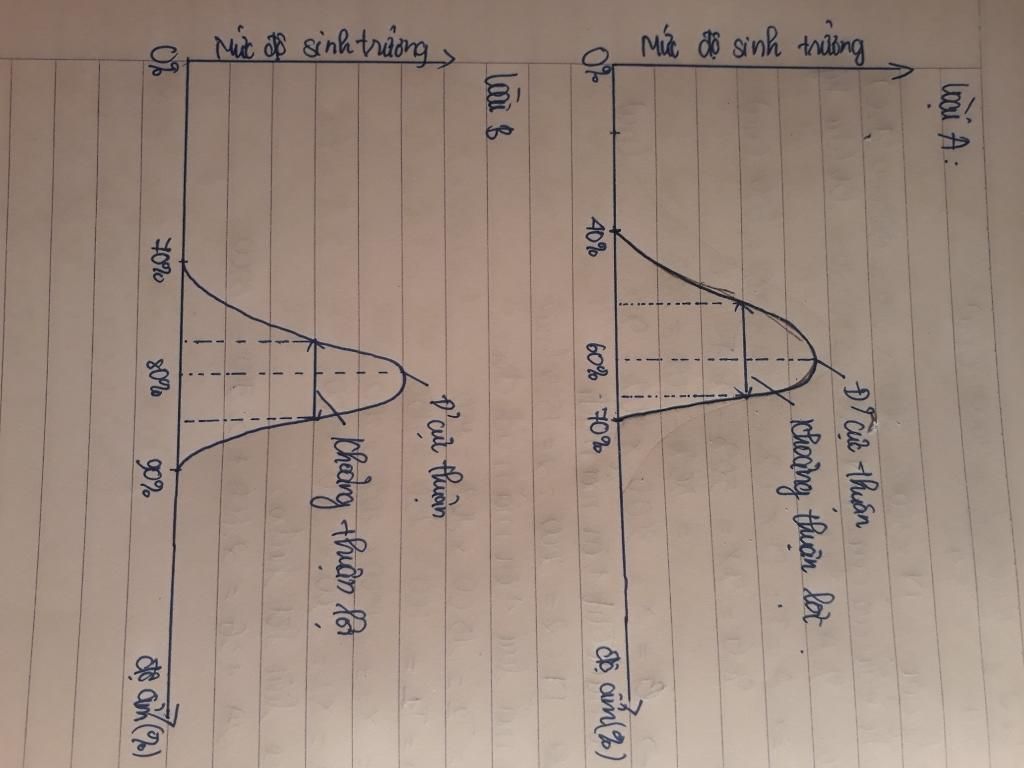 Loài A:
Mức độ sinh trưởng
Đ' cực thuận
khoảng thuận lợi
0%
40%
60%
70%
độ ẩm (%)
loài B
Mức độ sinh trưởng
Đ' cực thuận
khoảng thuận lợi
0%
70%
80%
90%
độ ẩm (%)